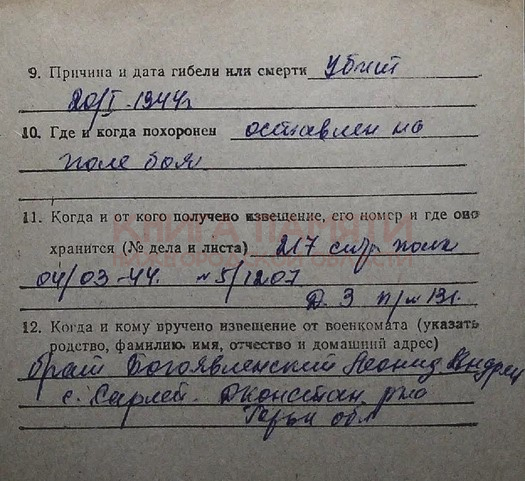 9. Причина и дата гибели или смерти убит
20/I-1944г
10. Где и когда похоронен оставлен на
поле боя
КНИГА ПАМЯТИ
11. Когда и от кого получено извещение, его номер и где оно
хранится (№ дела и листа) 217 стр полк
04/03-44. №5/1207
Д. 3 п/№ 131.
12. Когда и кому вручено извещение от военкомата (указать
родство, фамилию, имя, отчество и домашний адрес)
брат Богоявленский Леонид Андрее
с. Сарлей. Дконстан. р-на
Горьк обл